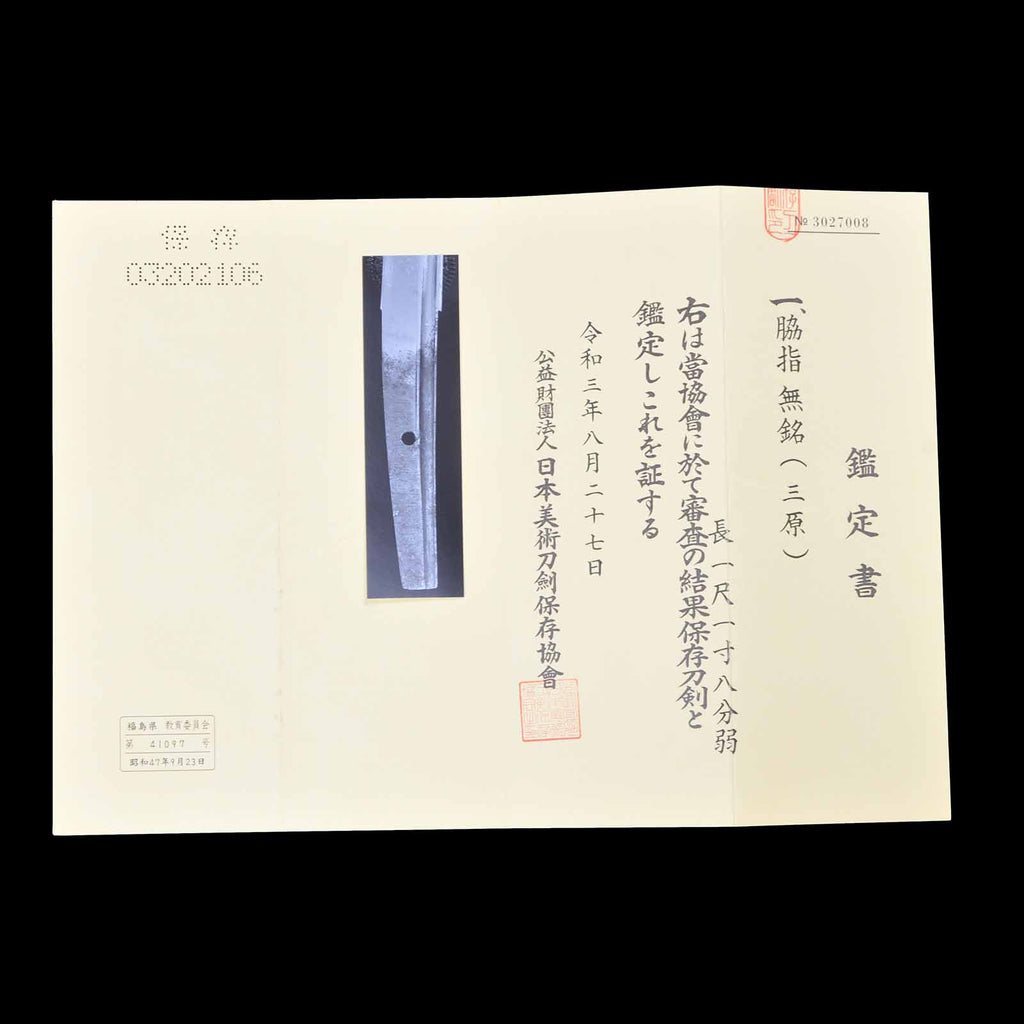 № 3027008
鑑定書
一、脇指 無銘(三原)
長 一尺一寸八分弱
右は當協會に於て審査の結果保存刀剣と
鑑定しこれを証する
令和三年八月二十七日
公益財團法人 日本美術刀劍保存協會
保存
03202106
福島県 教育委員会
第 41097 号
昭和47年9月23日